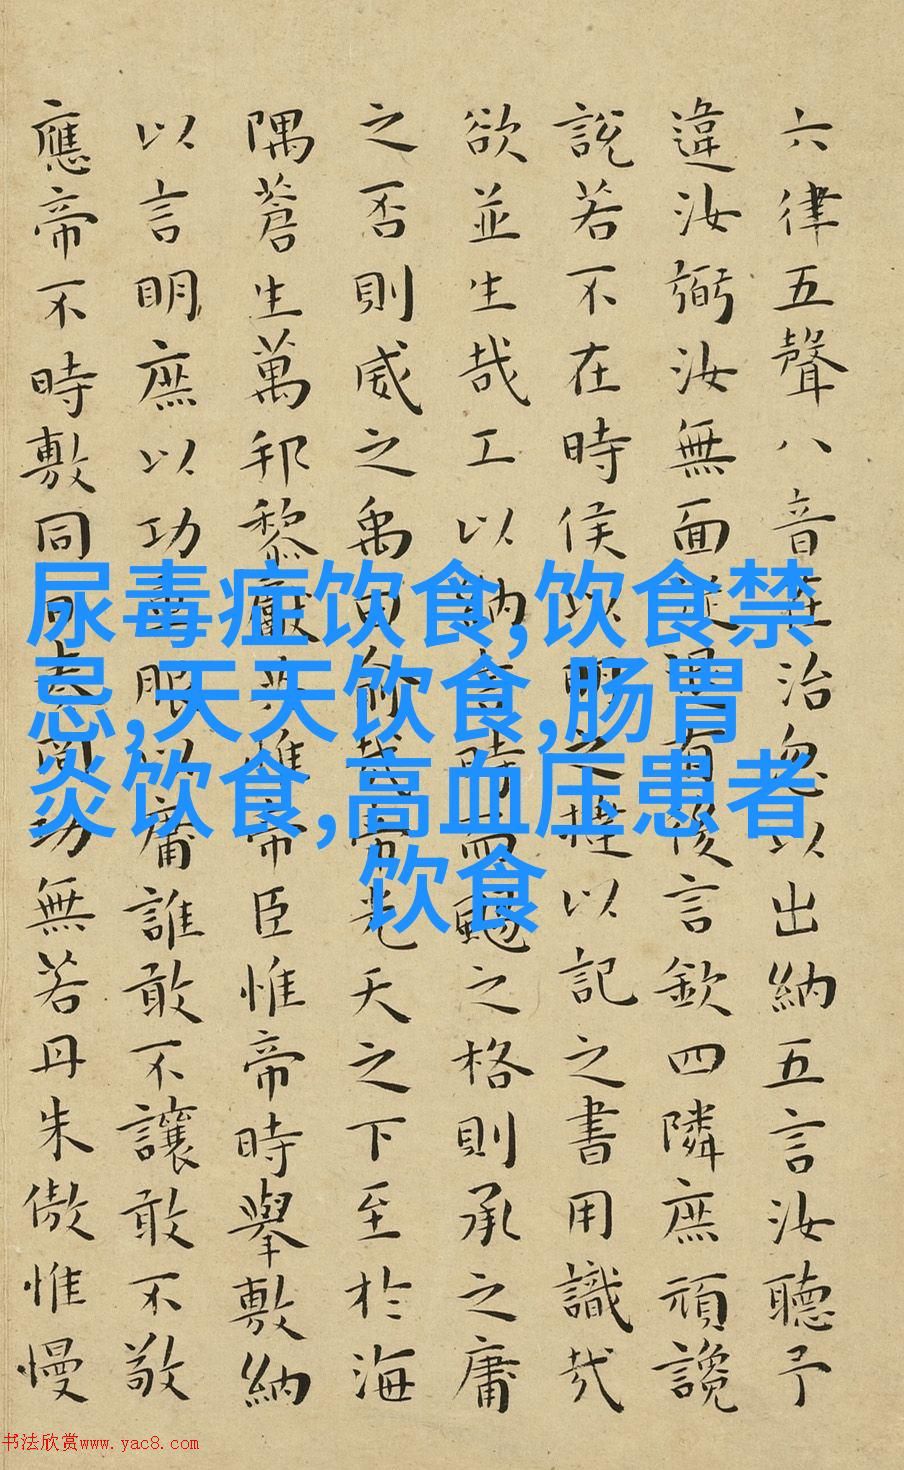 六律五聲八音在治忽以出納五言汝聽予
違汝弼汝無面從退有後言欽四隣庶頑讒
說若不在時侯以明之撻以記之書用識哉
欲並生哉工以納言時而颺之格則承之庸
之否則威之禹曰俞哉帝光天之下至於海
隅蒼生萬邦黎獻共惟帝臣惟帝時舉敷納
以言明庶以功車服以庸誰敢不讓敢不敬
應帝不時敷同日奏罔功無若丹朱傲惟慢
尿毒症饮食,饮食禁
忌,天天饮食,肠胃
炎饮食,高血压患者
饮食
书法欣赏www.yac8.com